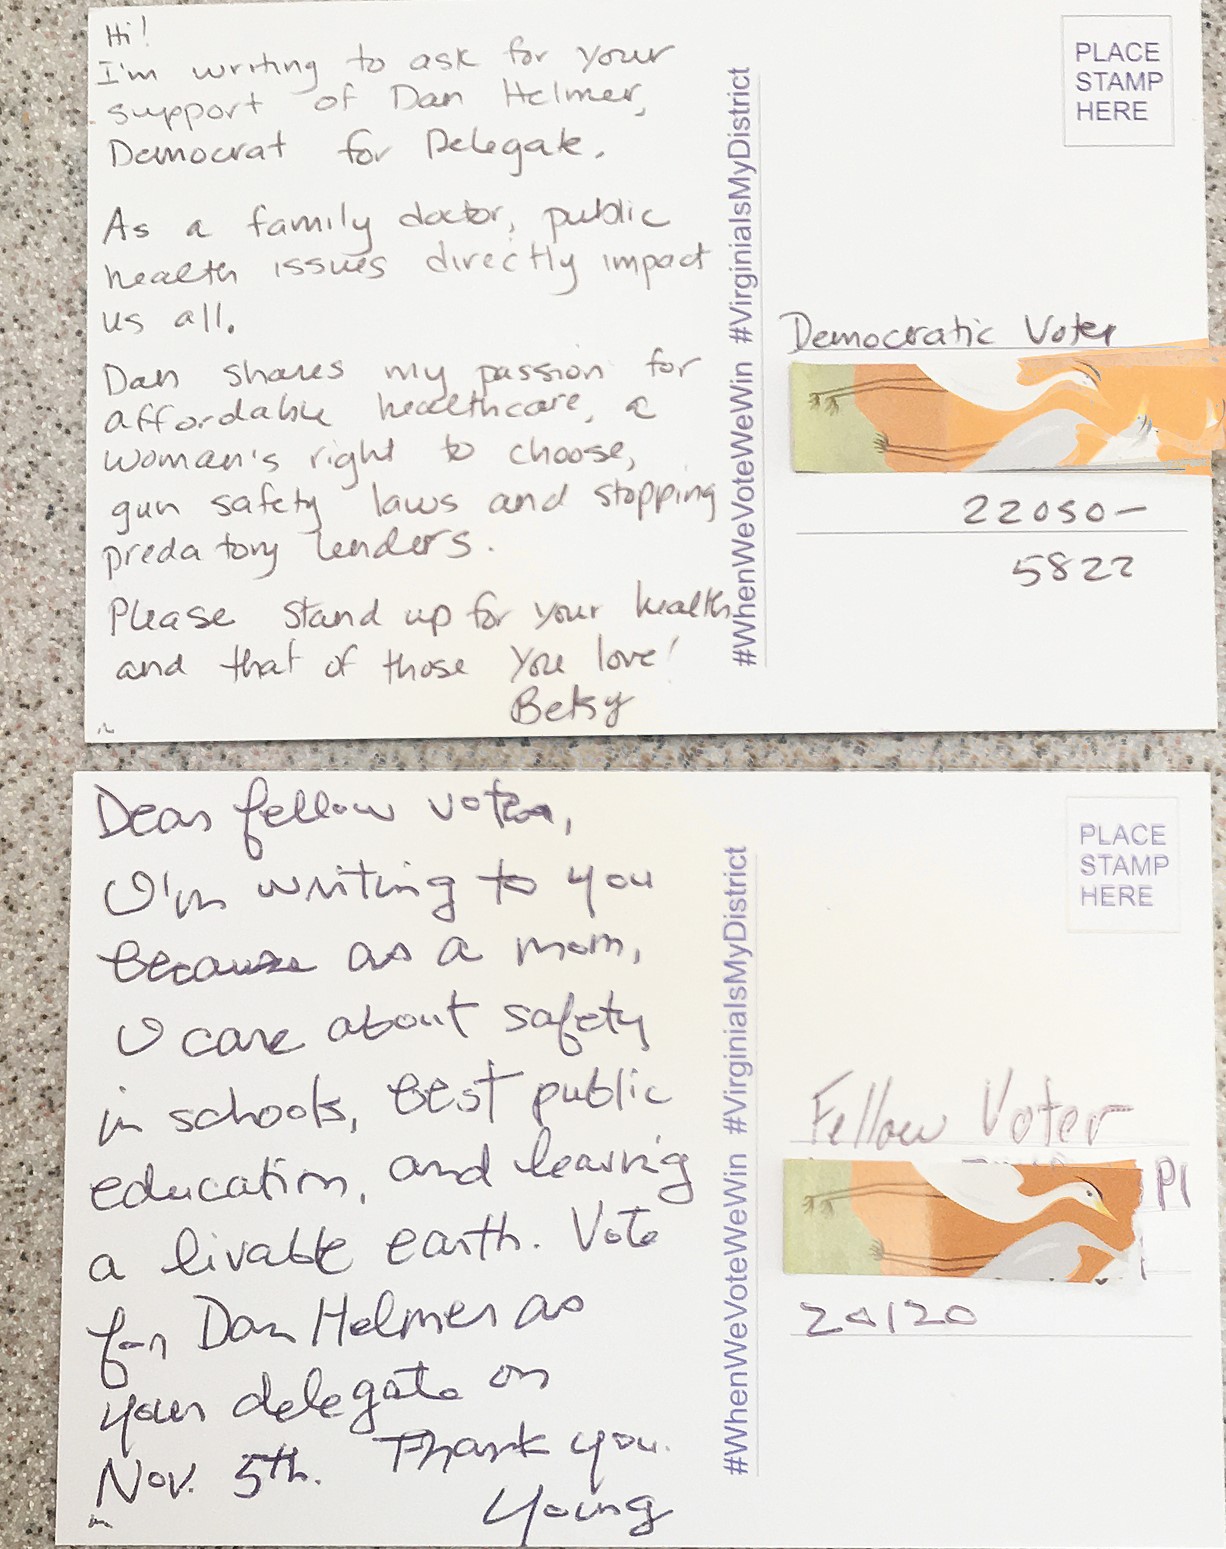 Hi!
I'm writing to ask for your
support of Dan Helmer,
Democrat for Delegate.
As a family doctor, public
health issues directly impact
us all.
Dan shares my passion for
affordable healthcare, a
woman's right to choose,
gun safety laws and stopping
predatory lenders.
Please stand up for your health
and that of those you love!
Betsy
#WhenWeVoteWeWin #VirginiaIsMyDistrict
PLACE
STAMP
HERE
Democratic Voter
22050-
5822
Dear fellow voter,
I'm writing to you
because as a mom,
I care about safety
in schools, best public
education, and leaving
a livable earth. Vote
for Dan Helmer as
your delegate on
Nov. 5th. Thank you.
Young
#WhenWeVoteWeWin #VirginiaIsMyDistrict
PLACE
STAMP
HERE
Fellow Voter
Pl
20120